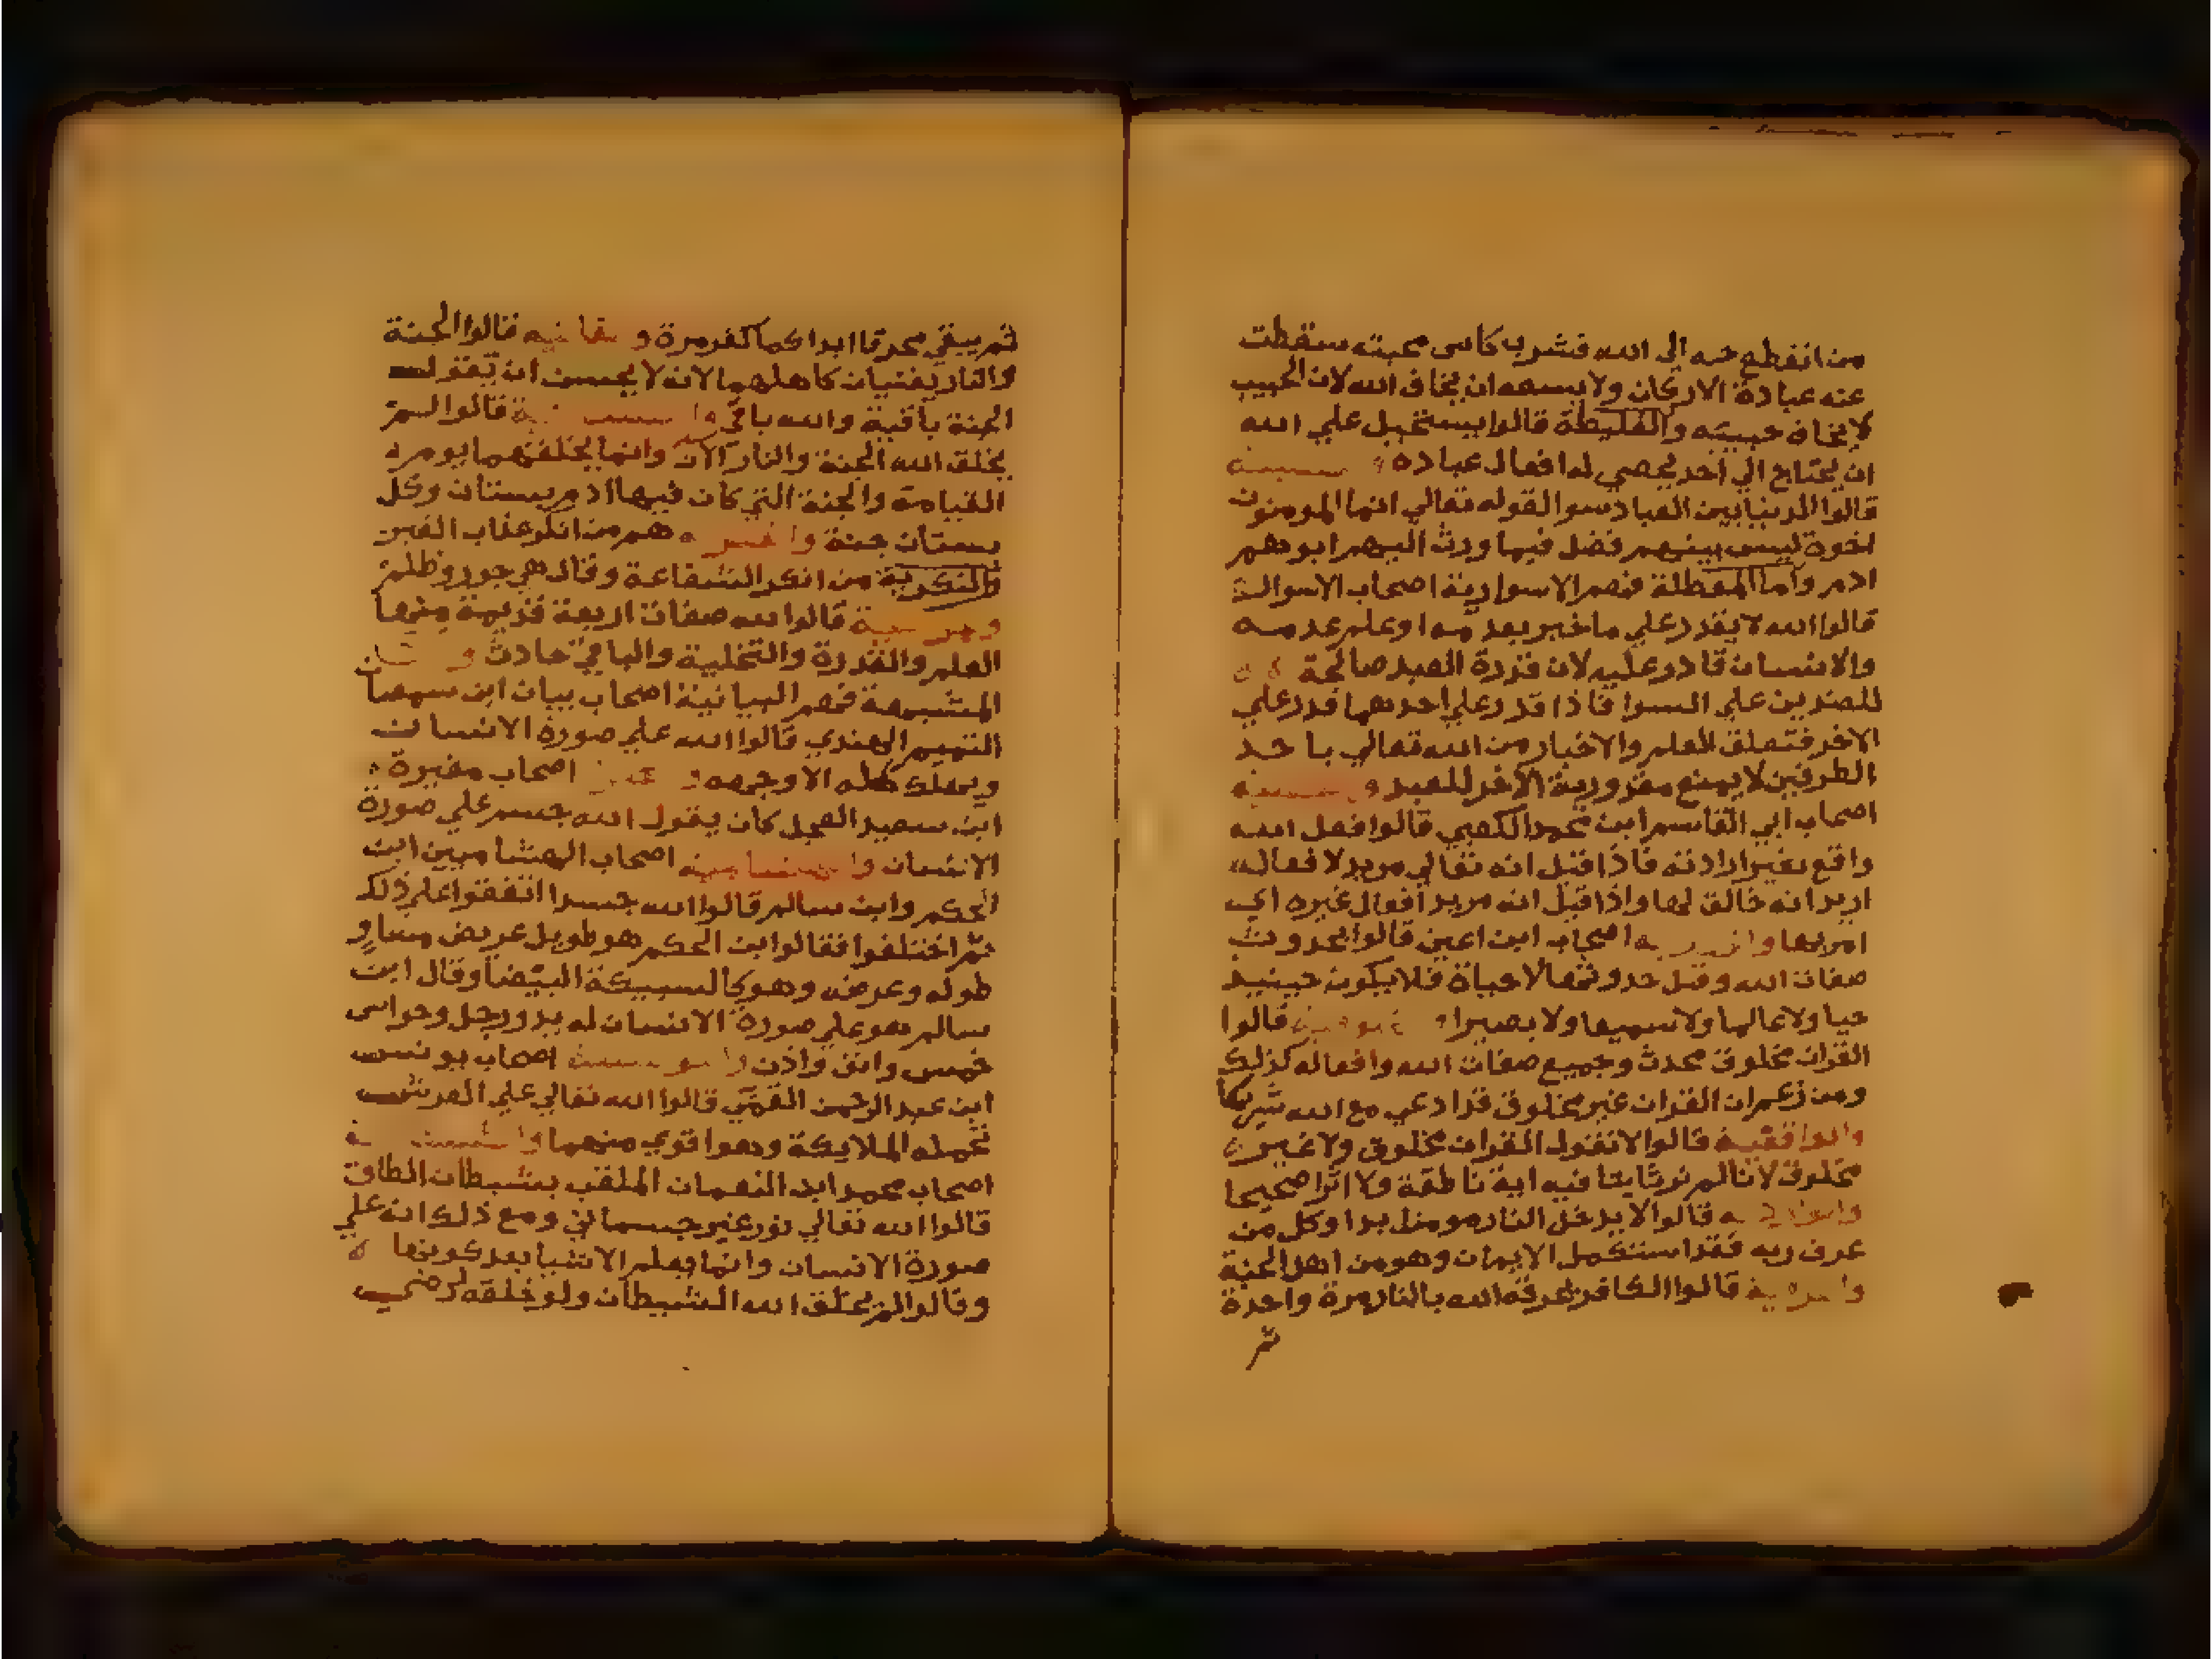 من انقطع منه الى الله فشرب كاس محبته سقطت
عنه عبادة الاركان ولا يسعه ان يخاف الله لان الحبيب
لا يخاف حبيبه والغليظة قالوا يستحيل علي الله
ان يحتاج الي احد يحصي له افعال عباده
قالوا الدنيا بين العباد سوا لقوله تعالي انما المومنون
اخوة ليس بينهم فضل فيما ورث اليهم ابوهم
ادم واما المعطلة فهم الاسوارية اصحاب الاسوالي
قالوا الله لا يقدر علي ما خبر بعدمه او علم عدمه
والانسان قادر عليه لان قدرة العبد صالحة
للضدين علي السوا فاذا قدر علي احدهما قدر علي
الاخر فتعلق العلم والاخبار من الله تعالي باحد
الطرفين لا يمنع مقدورية الاخر للعبد
اصحاب ابي القاسم ابن محمد الكعبي قالوا فعل الله
واقع بغير ارادته فاذا قيل انه تعالي مريد لافعاله
اريد انه خالق لها واذا قيل انه مريد افعال غيره اي
امر بها اصحاب ابن اعين قالوا بحدوث
صفات الله وقبل حدوثها لا حياة فلا يكون حينيد
حيا ولا عالما ولا سميعا ولا بصيرا قالوا
القران مخلوق محدث وجميع صفات الله وافعاله كذلك
ومن زعم ان القران غير مخلوق قد ادعي مع الله شريكا
والواقفية قالوا لا نقول القران مخلوق ولا غير
مخلوق لانا لم فيه اية ناطقة ولا اثرا صحيحا
قالوا لا يدخل النار مومن ابدا وكل من
عرف ربه فقد استكمل الايمان وهو من اهل الجنة
قالوا الكافر تحرقه الله بالنار مرة واحدة
ثم
ثم يبقي محرقا ابدا كما كفر مرة قالوا الجنة
والنار يفنيان كاهلهما لانه لا يحسن ان يقول
الجنة باقية والله باقي قالوا لم
يخلق الله الجنة والنار الان وانما يخلقهما يوم
القيامة والجنة التي كان فيها ادم بستان وكل
بستان جنة هم من انكر عذاب القبر
والمنكرية من انكر الشفاعة وقال هي جور وظلم
قالوا لله صفات اربعة قديمة منها
العلم والقدرة والتخلية والباقي حادث
المشبهة فهم البيانية اصحاب بيان ابن سمعان
التميم الهندي قالوا الله علي صورة الانسان
ويهلك كله الا وجهه اصحاب مغيرة
ابن سعيد العجل كان يقول الله جسم علي صورة
الانسان اصحاب الهشامين ابن
الحكم وابن سالم قالوا الله جسدا اتفقوا علي ذلك
ثم اختلفوا فقالوا ابن الحكم هو طويل عريض مساو
طوله وعرضه وهو كالسبيكة البيضا وقال ابن
سالم هو علي صورة الانسان له يد ورجل وحواس
خمس وانف واذن اصحاب يونس
ابن عبد الرحمن القمي قالوا الله تعالي علي العرش
تحمله الملايكة وهو اقوي منهما
اصحاب محمد ابن النعمان الملقب بشيطان الطاق
قالوا الله تعالي نور غير جسماني ومع ذلك انه علي
صورة الانسان وانما يعلم الاشيا بعد كونها
وقالوا لم يخلق الله الشيطان ولو خلقه لرضي